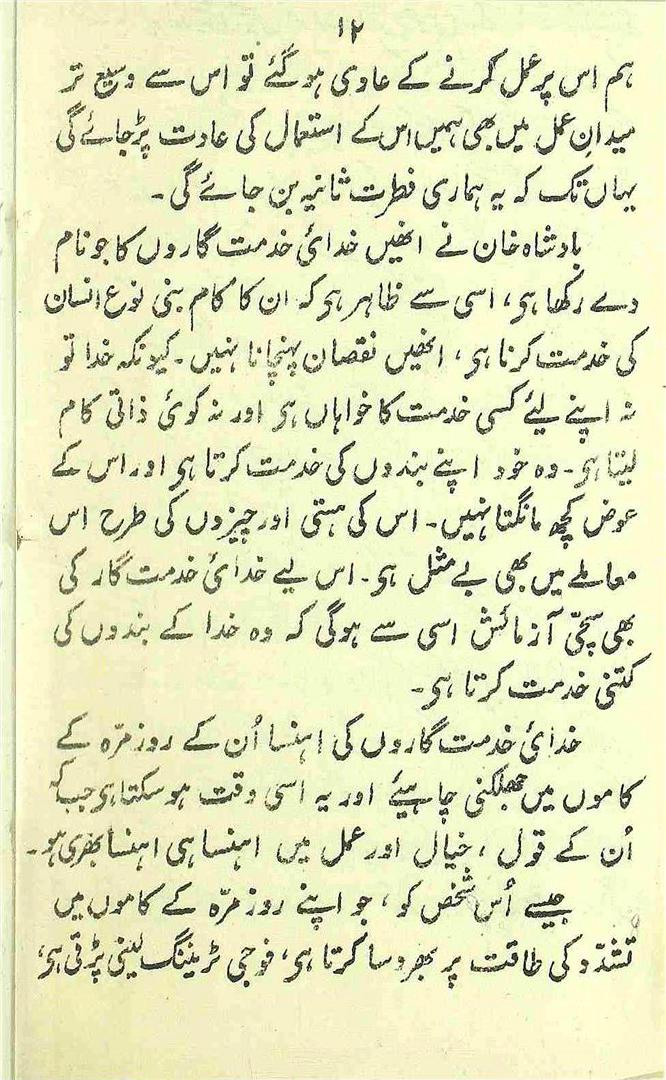 ۱۲
ہم اس پر عمل کرنے کے عادی ہو گئے تو اس سے وسیع تر
میدانِ عمل میں بھی ہمیں اس کے استعمال کی عادت پڑ جائے گی
یہاں تک کہ یہ ہماری فطرت ثانیہ بن جائے گی۔
بادشاہ خان نے انھیں خدائی خدمت گاروں کا جو نام
دے رکھا ہے، اسی سے ظاہر ہے کہ ان کا کام بنی نوع انسان
کی خدمت کرنا ہے، انھیں نقصان پہنچانا نہیں۔ کیونکہ خدا تو
نہ اپنے لیئے کسی خدمت کا خواہاں ہے اور نہ کوئی ذاتی کام
لیتا ہے۔ وہ خود اپنے بندوں کی خدمت کرتا ہے اور اس کے
عوض کچھ مانگتا نہیں۔ اس کی ہستی اور چیزوں کی طرح اس
معاملے میں بھی بے مثل ہے۔ اس لیے خدائی خدمت گار کی
بھی سچّی آزمائش اسی سے ہوگی کہ وہ خدا کے بندوں کی
کتنی خدمت کرتا ہے۔
خدائی خدمت گاروں کی اہنسا اُن کے روز مرّہ کے
کاموں میں جھلکنی چاہیئے اور یہ اسی وقت ہو سکتا ہے جب کہ
اُن کے قول، خیال اور عمل میں اہنسا ہی اہنسا بھری ہو۔
جیسے اُس شخص کو، جو اپنے روز مرّہ کے کاموں میں
تشدّد کی طاقت پر بھروسا کرتا ہے، فوجی ٹریننگ لینی پڑتی ہے،